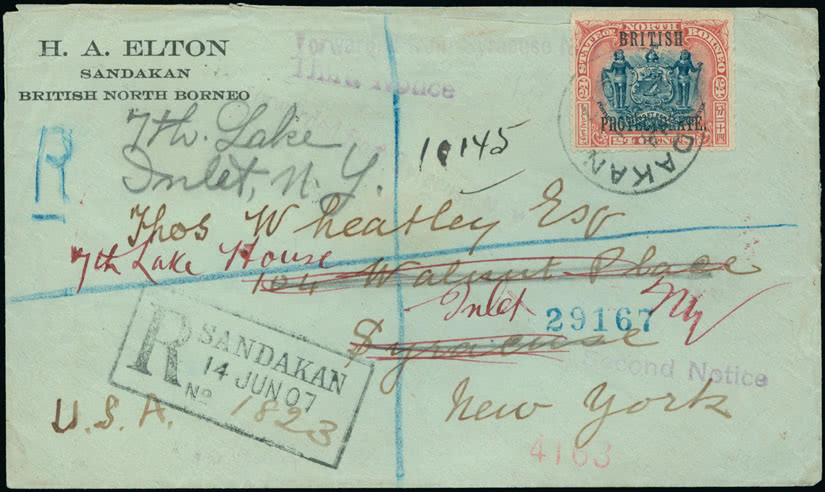 H. A. ELTON
SANDAKAN
BRITISH NORTH BORNEO
Third Notice
STATE OF NORTH BORNEO
BRITISH
PROTECTORATE.
DAKAN
R
7th. Lake
Inlet, N. Y.
10145
Thos Wheatley Esq
7th Lake House
104 Walnut Place
Inlet NY
29167
Syracuse
Second Notice
R SANDAKAN
14 JUN 07
No 1823
U.S.A.
New York
4163